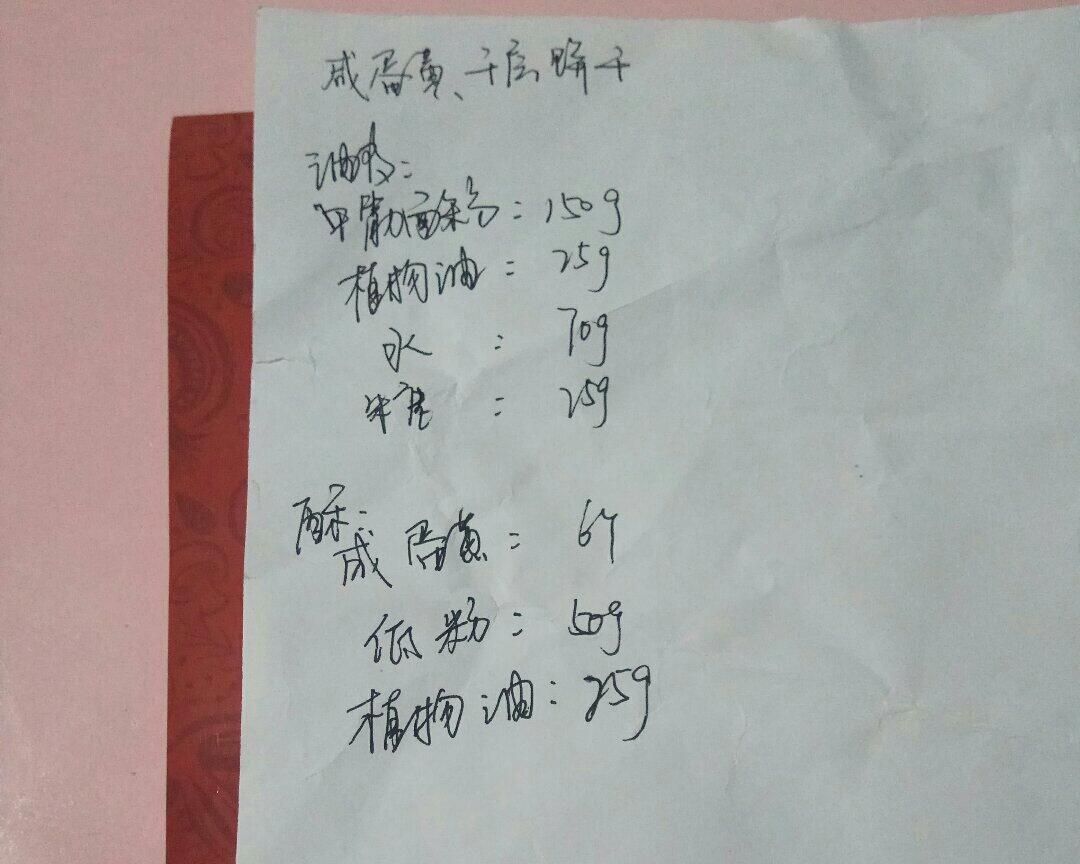 咸蛋黄、千层饼干
油皮:
中筋面粉:150g
植物油:25g
水:70g
糖:25g
酥:
咸蛋黄:6个
低粉:50g
植物油:25g